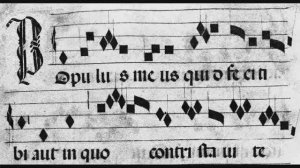 Popu lu s me us qui d fe ci ti
bi aut in quo contri sta ui te